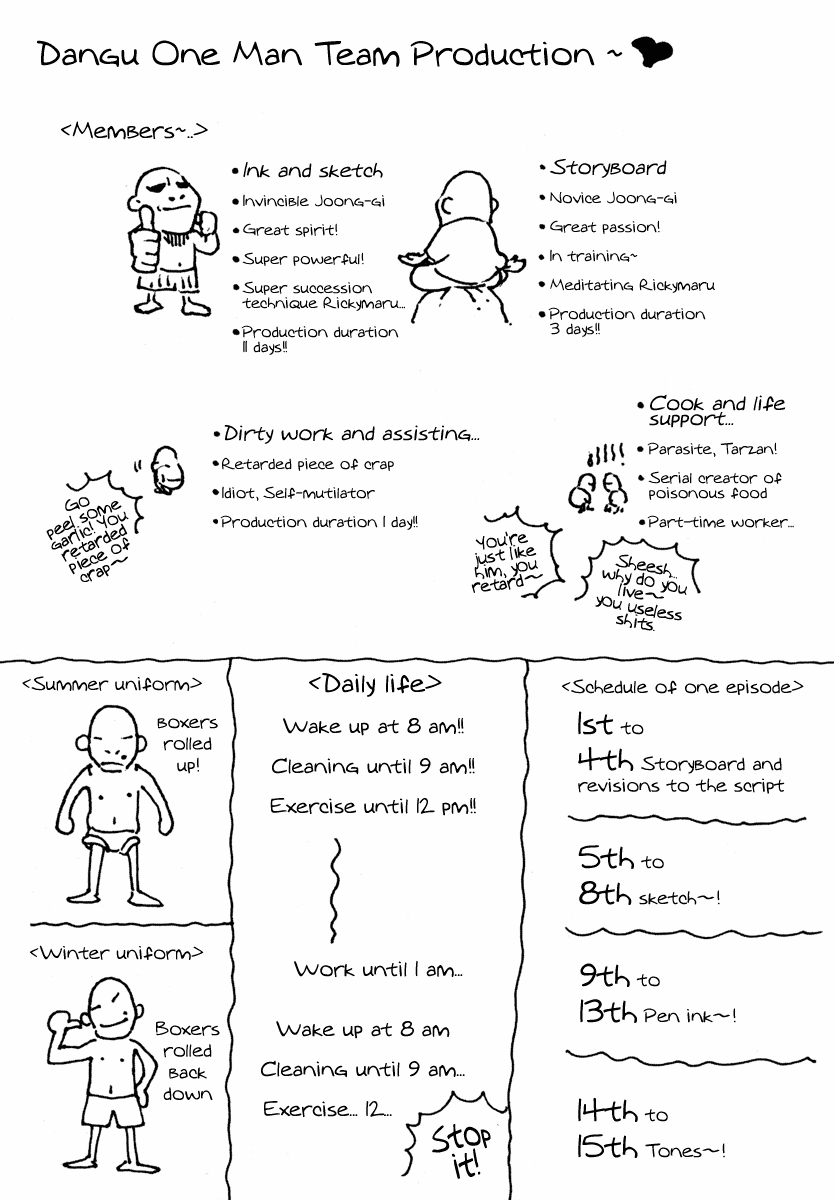 Dangu One Man Team Production ~
<Members~..>
• Ink and sketch
• Invincible Joong-Gi
• Great spirit!
• Super powerful!
• Super succession
technique Rickymaru...
• Production duration
11 days!!
• Storyboard
• Novice Joong-Gi
• Great passion!
• In training~
• Meditating Rickymaru
• Production duration
3 days!!
• Dirty work and assisting...
• Retarded piece of crap
• Idiot, Self-mutilator
• Production duration 1 day!!
Go
peel some
garlic! You
retarded
piece of
crap~
• Cook and life
support...
• Parasite, Tarzan!
• Serial creator of
poisonous food
• Part-time worker...
You're
just like
him, you
retard~
Sheesh...
why do you
live~
you useless
shits.
<Summer uniform>
Boxers
rolled
up!
<Winter uniform>
Boxers
rolled
back
down
<Daily life>
Wake up at 8 am!!
Cleaning until 9 am!!
Exercise until 12 pm!!
Work until 1 am...
Wake up at 8 am
Cleaning until 9 am...
Exercise... 12...
Stop
it!
<Schedule of one episode>
1st to
4th Storyboard and
revisions to the script
5th to
8th sketch~!
9th to
13th Pen ink~!
14th to
15th Tones~!